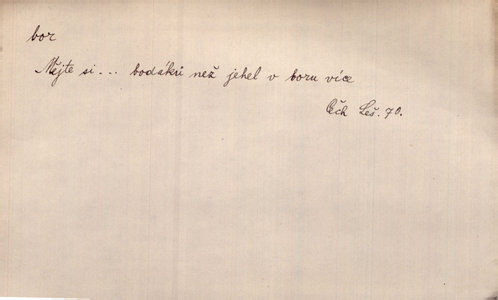 bor
Mějte si... bodáků než jehel v boru více
Čch Leš. 70.